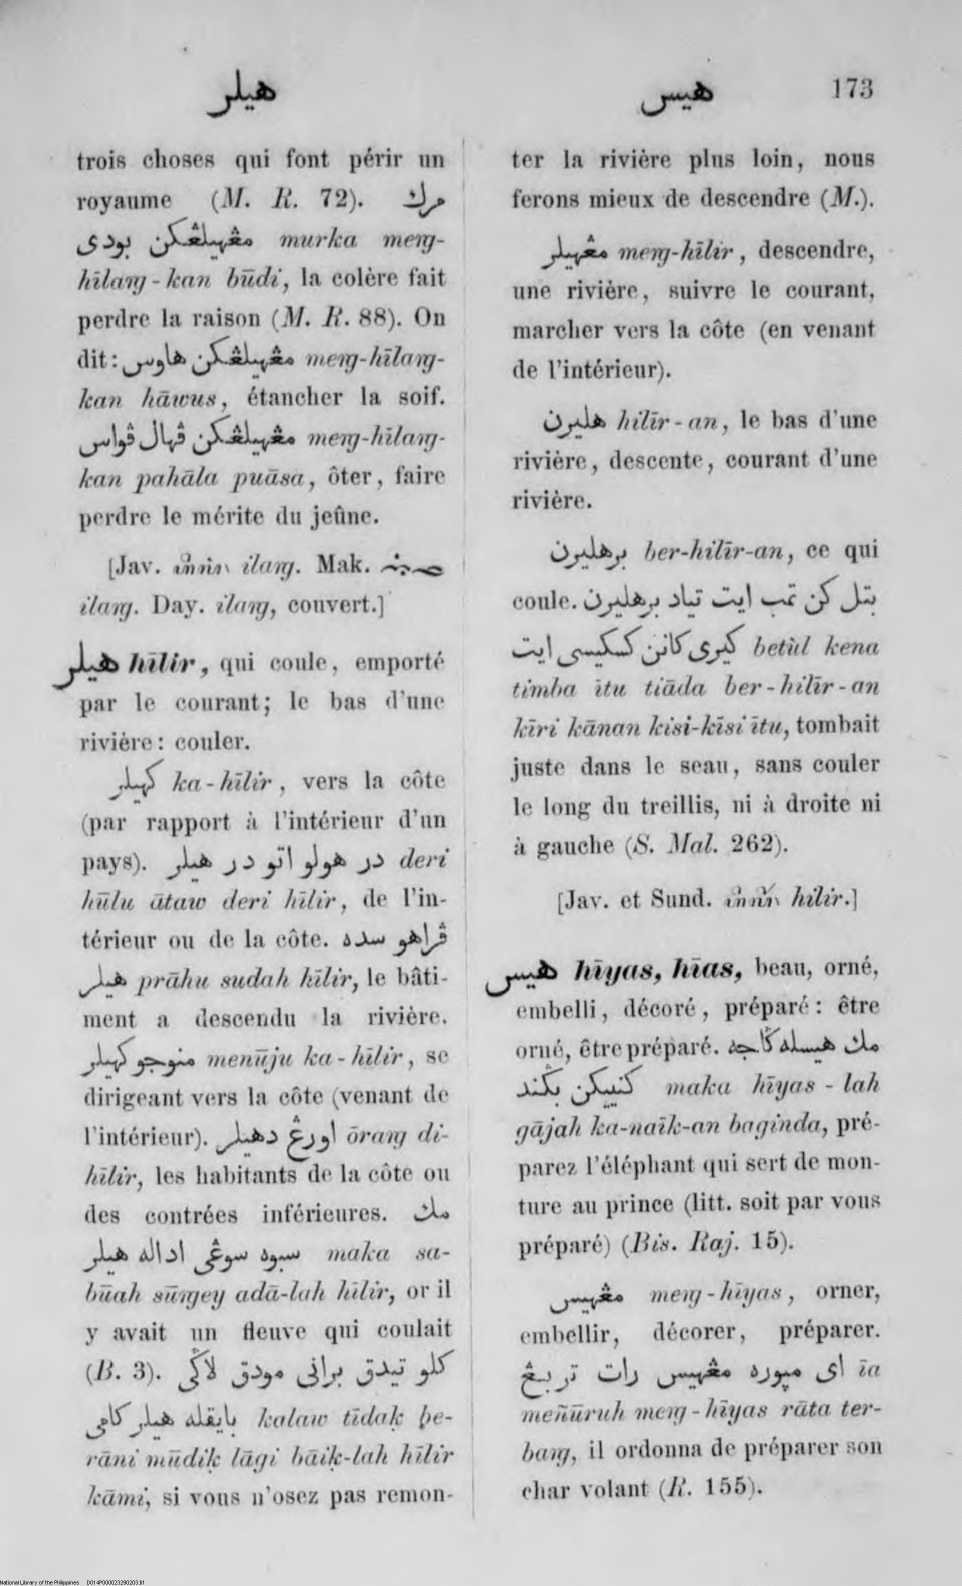 هيلر
هيس 173
trois choses qui font périr un
royaume (M. R. 72). مرك
مڠهيلڠكن بودى murka meƞg-
hīlaƞg-kan būdi, la colère fait
perdre la raison (M. R. 88). On
dit: مڠهيلڠكن هاوس meƞg-hīlaƞg-
kan hāwus, étancher la soif.
مڠهيلڠكن ڤهال ڤواس meƞg-hīlaƞg-
kan pahāla puāsa, ôter, faire
perdre le mérite du jeûne.
[Jav. ilaƞg. Mak.
ilaƞg. Day. ilaƞg, couvert.]
هيلر hīlir, qui coule, emporté
par le courant; le bas d'une
rivière: couler.
كهيلر ka-hīlir, vers la côte
(par rapport à l'intérieur d'un
pays). در هولو اتو در هيلر deri
hūlu ātaw deri hīlir, de l'in-
térieur ou de la côte. ڤراهو سده
هيلر prāhu sudah hīlir, le bâti-
ment a descendu la rivière.
منوجو كهيلر menūju ka-hīlir, se
dirigeant vers la côte (venant de
l'intérieur). اورڠ دهيلر ōraƞg di-
hīlir, les habitants de la côte ou
des contrées inférieures. مك
سبوه سوڠى اداله هيلر maka sa-
būah sūƞgey adā-lah hīlir, or il
y avait un fleuve qui coulait
(B. 3). كلو تيدق برانى مودق لاڬى
بايقله هيلر كامى kalaw tīdaḳ be-
rāni mūdiḳ lāgi bāiḳ-lah hīlir
kāmi, si vous n'osez pas remon-
ter la rivière plus loin, nous
ferons mieux de descendre (M.).
مڠهيلر meƞg-hīlir, descendre,
une rivière, suivre le courant,
marcher vers la côte (en venant
de l'intérieur).
هليرن hilīr-an, le bas d'une
rivière, descente, courant d'une
rivière.
برهليرن ber-hilīr-an, ce qui
coule. بتل كن تمب ايت تياد برهليرن
كيرى كانن كسكيسى ايت betùl kena
timba ītu tiāda ber-hilīr-an
kīri kānan kisi-kīsi ītu, tombait
juste dans le seau, sans couler
le long du treillis, ni à droite ni
à gauche (S. Mal. 262).
[Jav. et Sund. hilir.]
هيس hīyas, hīas, beau, orné,
embelli, décoré, préparé: être
orné, être préparé. مك هيسله ڬاجه
كنييكن بڬند maka hīyas-lah
gājah ka-naīk-an baginda, pré-
parez l'éléphant qui sert de mon-
ture au prince (litt. soit par vous
préparé) (Bis. Raj. 15).
مڠهيس meƞg-hīyas, orner,
embellir, décorer, préparer.
اى مڽوره مڠهيس رات تربڠ īa
meñūruh meƞg-hīyas rāta ter-
baƞg, il ordonna de préparer son
char volant (R. 155).
National Library of the Philippines